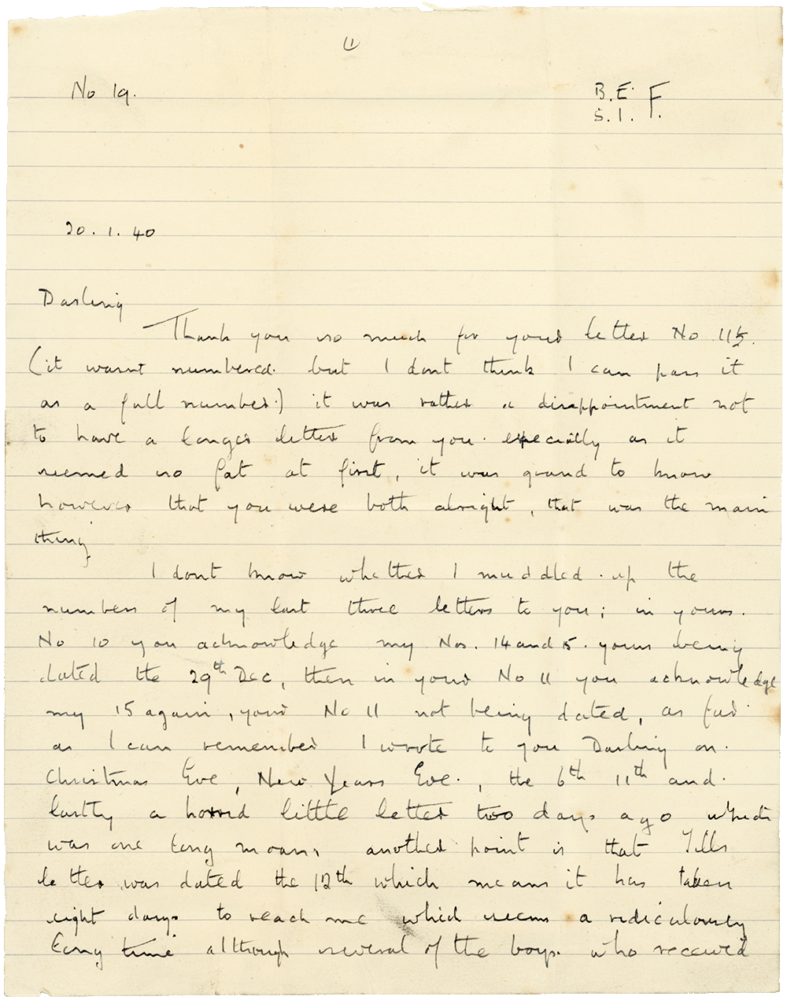 (1)
No 19.
B.E.F.
S.I.
20.1.40
Darling
Thank you so much for your letter No 11½.
(it wasnt numbered. but I dont think I can pass it
as a full number.) it was rather a disappointment not
to have a longer letter from you. especially as it
seemed so fat at first, it was grand to know
however that you were both alright, that was the main
thing
I dont know whether I muddled up the
numbers of my last three letters to you; in yours.
No 10 you acknowledge my Nos. 14 and 15. yours being
dated the 29th Dec, then in your No 11 you acknowledge
my 15 again, your No 11 not being dated, as far
as I can remember I wrote to you Darling on.
Christmas Eve, New Years Eve., the 6th 11th and.
lastly a horrid little letter two days ago which
was one long moan, another point is that
letter was dated the 12th which means it has taken
eight days to reach me which seems a ridiculously
long time although several of the boys. who received